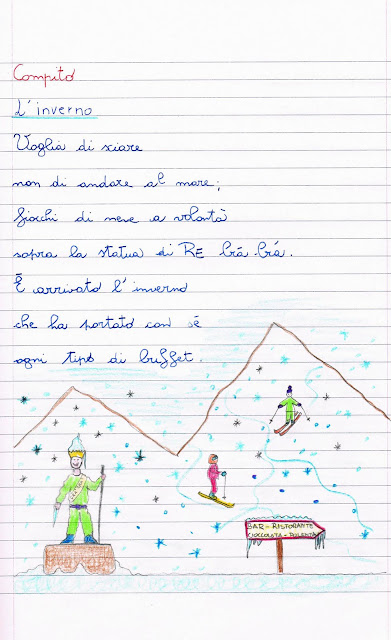 Compito
L'inverno
Voglia di sciare
non di andare al mare;
fiocchi di neve a volontà
sopra la statua di RE brá brá.
È arrivato l'inverno
che ha portato con sé
ogni tipo di buffet.
BAR - RISTORANTE
CIOCCOLATA - POLENTA